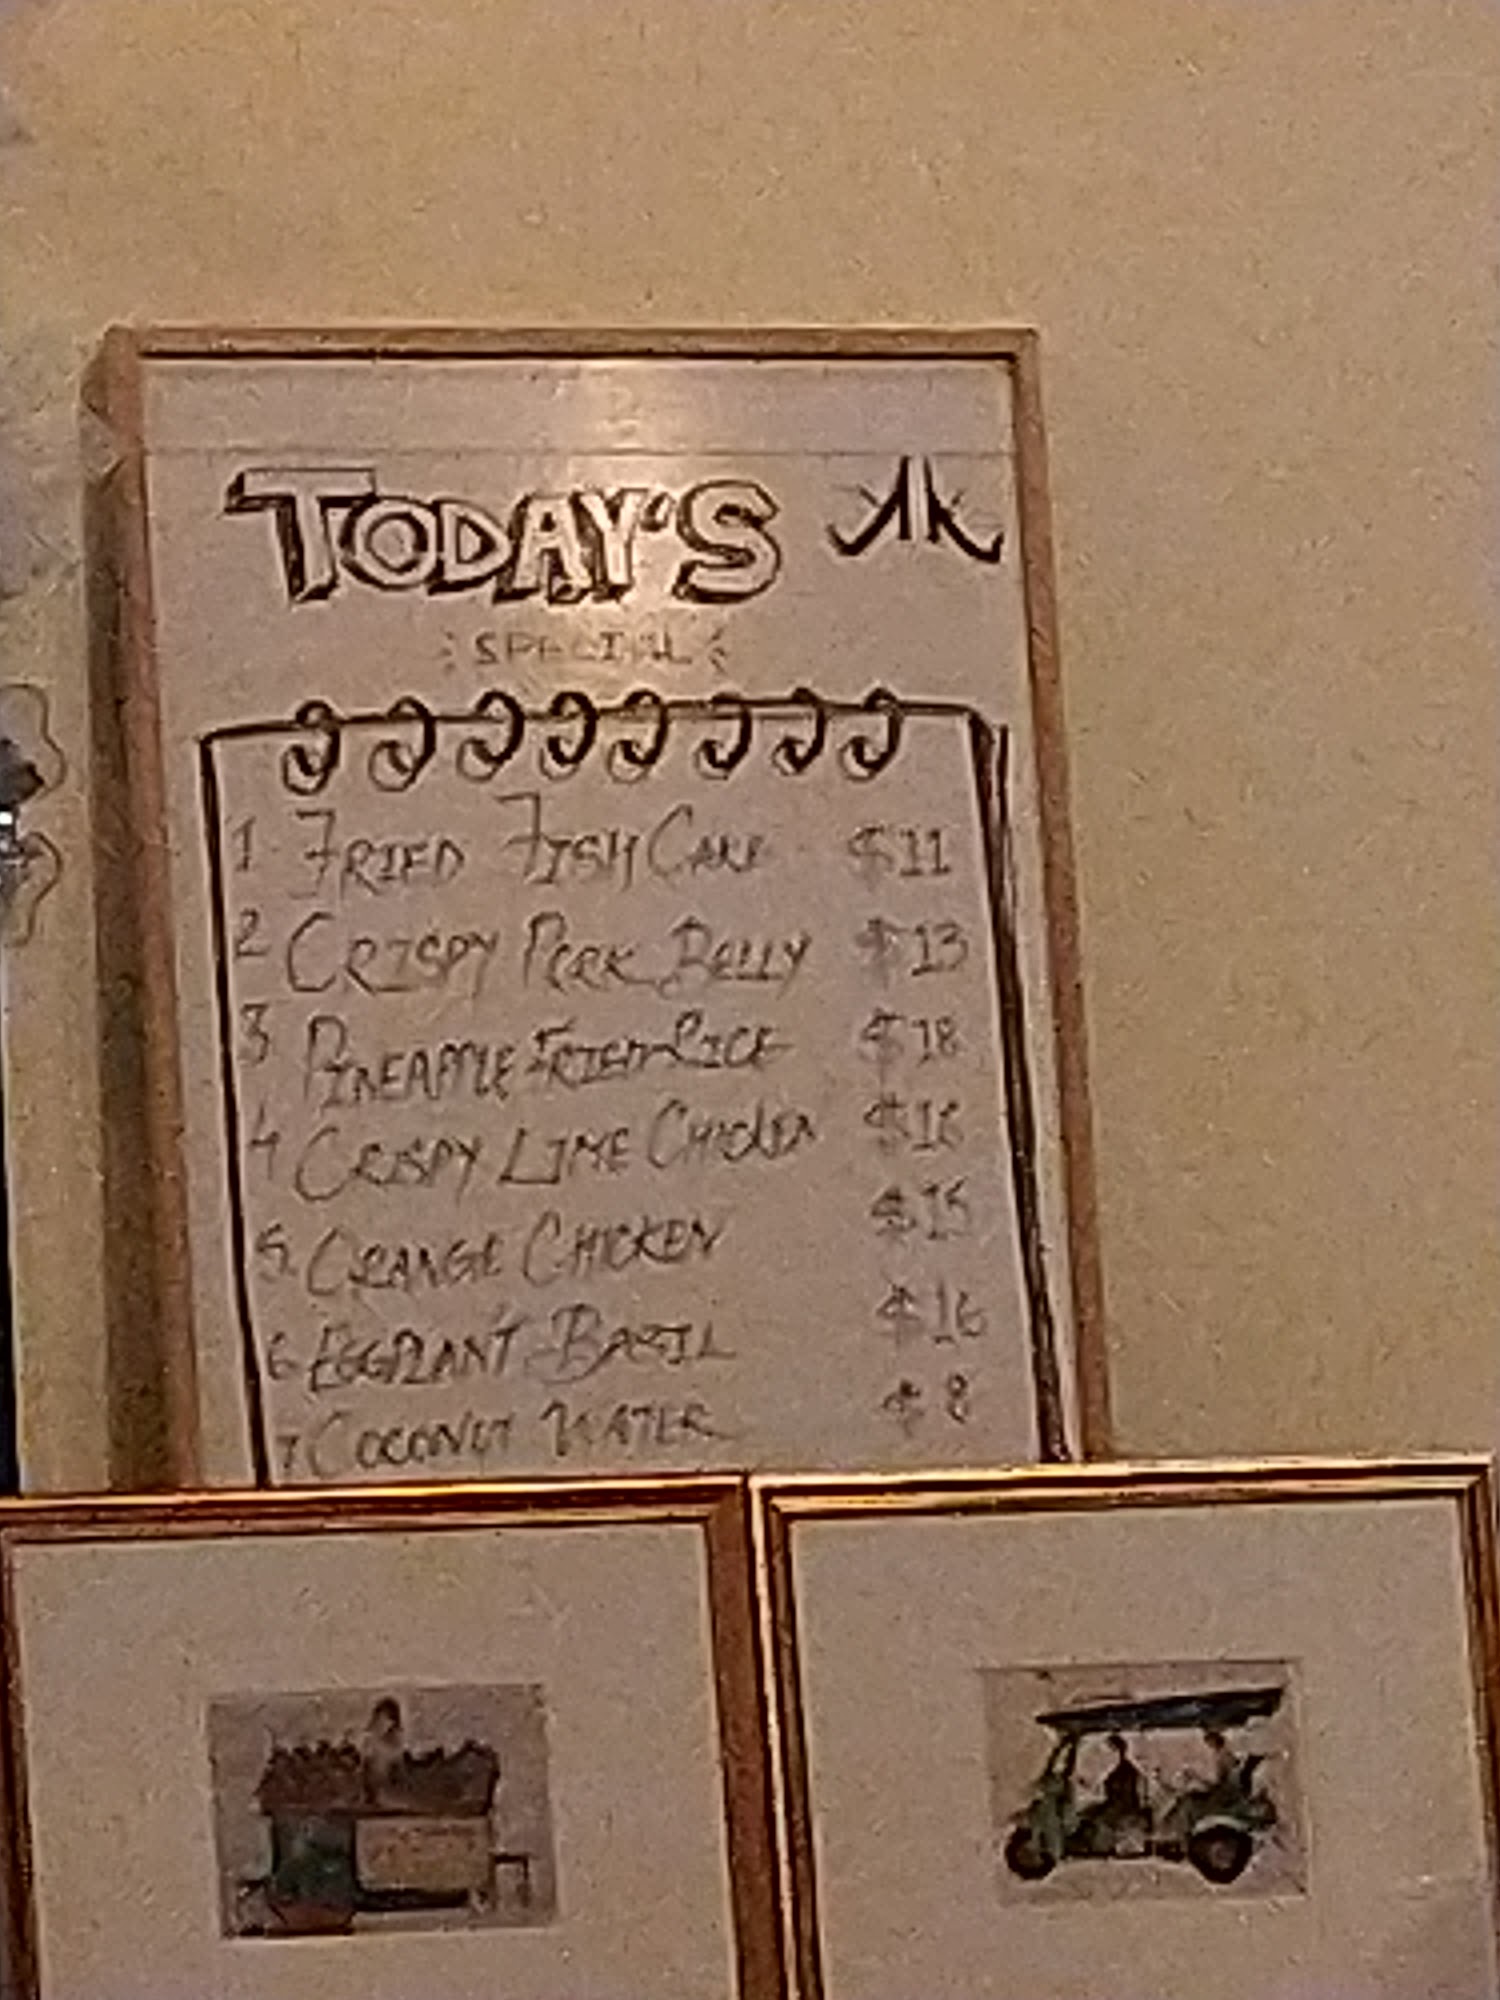 TODAY'S
SPECIAL
1. FRIED FISH CAKE $11
2 CRISPY PORK BELLY $13
3 PINEAPPLE FRIED RICE $18
4 CRISPY LIME CHICKEN $16
5. ORANGE CHICKEN $15
6 EGGPLANT BASIL $16
7 COCONUT WATER $8